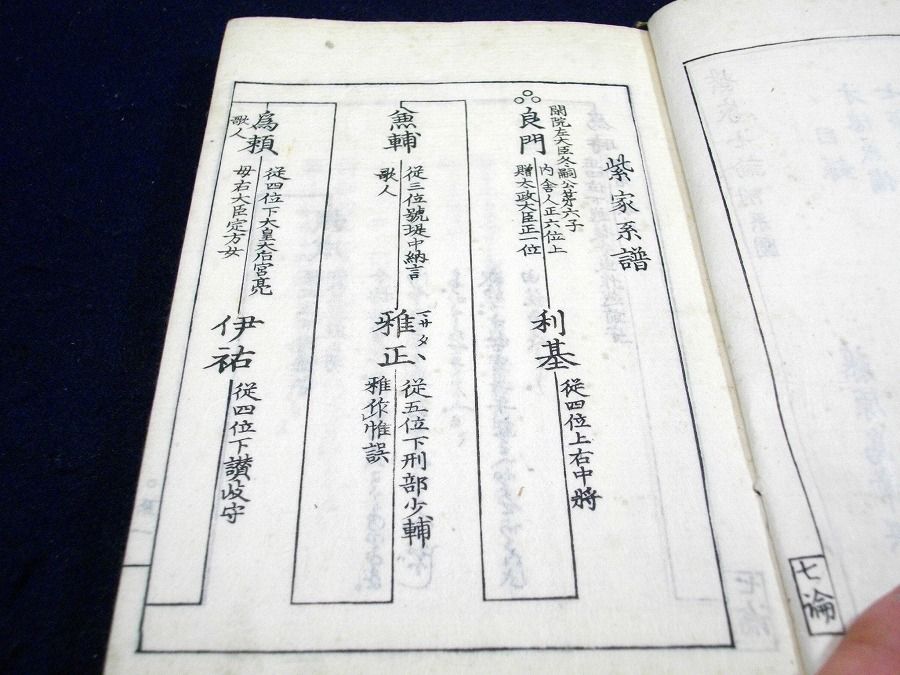 紫家系譜
良門
閑院左大臣冬嗣公第六子
内舎人正六位上
贈太政大臣正一位
利基
從四位上右中將
兼輔
從三位號堤中納言
歌人
雅正
マサタヽ
從五位下刑部少輔
雅作惟誤
爲頼
歌人
從四位下大皇大后宮亮
母右大臣定方女
伊祐
從四位下讃岐守
七論